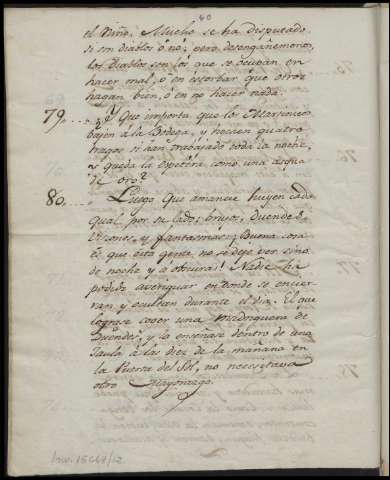 40
el Niño. Mucho se ha disputado
si son diablos ó no; pero desengañemonos,
los Diablos son los que se ocupan en
hacer mal, ó en estorbar que otros
hagan bien, ó en no hacer nada.
79..... ¿Y que importa que los Martinicos
bajen à la Bodega, y hechen quatro
tragos si han trabajado toda la noche,
y queda la espetera como una ascua
de oro?
80..... Luego que amanece huyen cada
qual por su lado, brujos, Duendes,
visiones, y fantasmas. ¡Buena cosa
es que esta gente no se deje ver sino
de noche y a obscuras! Nadie ha
podido averiguar en donde se encier
ran, y ocultan durante el dia. El que
lograse coger una Madriguera de
Duendes, y la enseñase dentro de una
Jaula à las diez de la mañana en
la Puerta del Sol, no necesitava
otro Mayorazgo.
Inv. 15C64/12